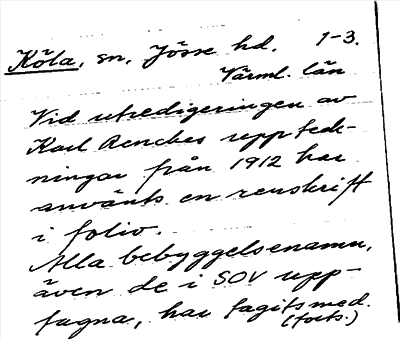 Köla, sn, Jösse hd. 1-3.
Värml. län
Vid utredigeringen av
Karl Renckes uppteck-
ningar från 1912 har
använts en renskrift
i folio.
Alla bebyggelsenamn,
även de i SOV upp-
tagna, har tagits med.
(forts.)